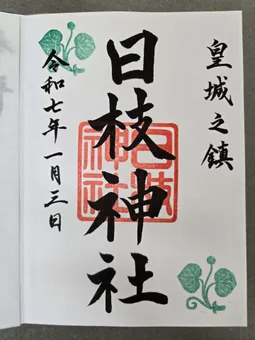 皇城之鎮
日枝神社
令和七年一月三日
日枝神社